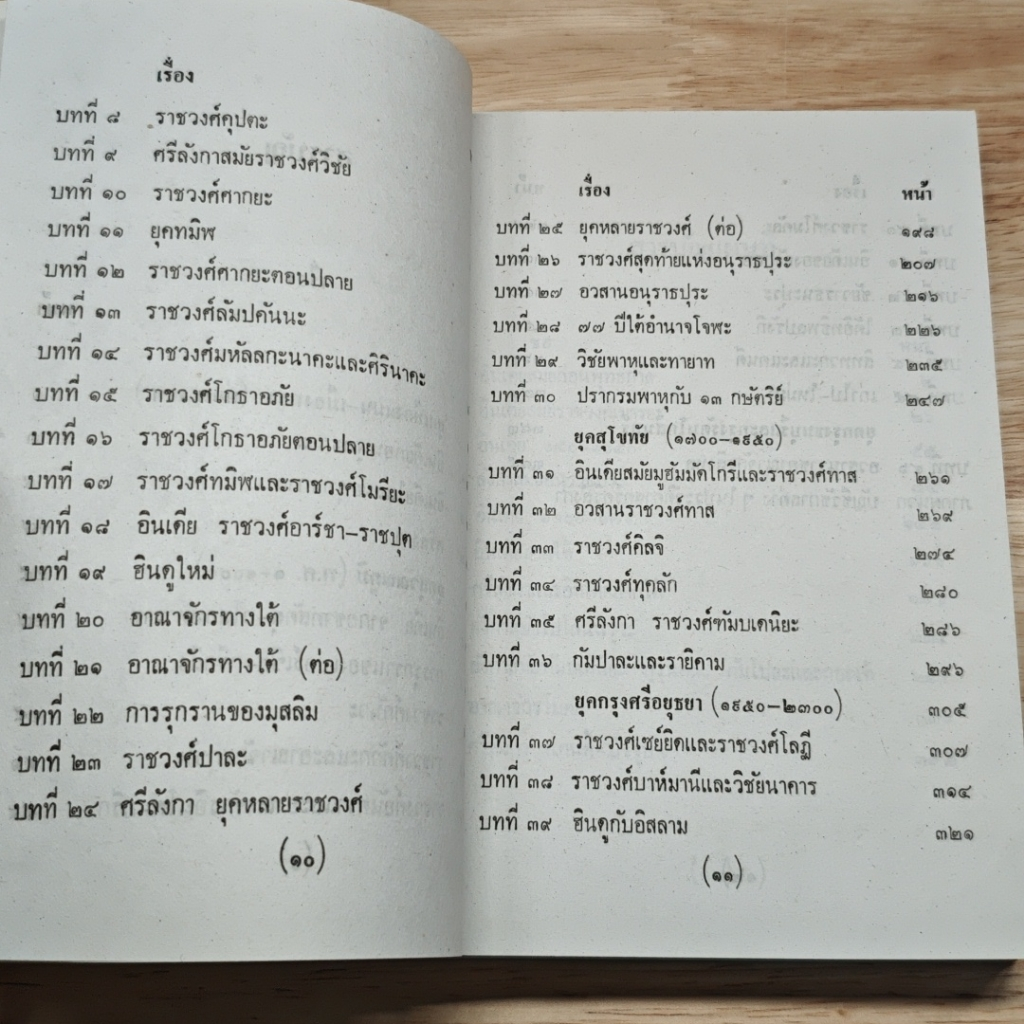 เรื่อง
บทที่ ๘ ราชวงศ์คุปตะ
บทที่ ๙ ศรีลังกาสมัยราชวงศ์วิชัย
บทที่ ๑๐ ราชวงศ์ศากยะ
บทที่ ๑๑ ยุคทมิฬ
บทที่ ๑๒ ราชวงศ์ศากยะตอนปลาย
บทที่ ๑๓ ราชวงศ์ลัมปคันนะ
บทที่ ๑๔ ราชวงศ์มหัลลกะนาคะและศิรินาคะ
บทที่ ๑๕ ราชวงศ์โกธาอภัย
บทที่ ๑๖ ราชวงศ์โกธาอภัยตอนปลาย
บทที่ ๑๗ ราชวงศ์ทมิฬและราชวงศ์โมรียะ
บทที่ ๑๘ อินเดีย ราชวงศ์อาร์ชา-ราชปุต
บทที่ ๑๙ ฮินดูใหม่
บทที่ ๒๐ อาณาจักรทางใต้
บทที่ ๒๑ อาณาจักรทางใต้ (ต่อ)
บทที่ ๒๒ การรุกรานของมุสลิม
บทที่ ๒๓ ราชวงศ์ปาละ
บทที่ ๒๔ ศรีลังกา ยุคหลายราชวงศ์
(๑๐)
เรื่อง หน้า
บทที่ ๒๕ ยุคหลายราชวงศ์ (ต่อ) ๑๙๘
บทที่ ๒๖ ราชวงศ์สุดท้ายแห่งอนุราธปุระ ๒๐๗
บทที่ ๒๗ อวสานอนุราธปุระ ๒๑๖
บทที่ ๒๘ ๗๗ ปีใต้อำนาจโจฬะ ๒๒๖
บทที่ ๒๙ วิชัยพาหุและทายาท ๒๓๕
บทที่ ๓๐ ปรากรมพาหุกับ ๑๓ กษัตริย์ ๒๔๗
ยุคสุโขทัย (๑๗๐๐-๑๙๕๐)
บทที่ ๓๑ อินเดียสมัยมูฮัมมัดโกรีและราชวงศ์ทาส ๒๖๑
บทที่ ๓๒ อวสานราชวงศ์ทาส ๒๖๙
บทที่ ๓๓ ราชวงศ์คิลจิ ๒๗๔
บทที่ ๓๔ ราชวงศ์ทุคลัก ๒๘๐
บทที่ ๓๕ ศรีลังกา ราชวงศ์ฑัมบเดนิยะ ๒๘๖
บทที่ ๓๖ กัมปาละและรายิคาม ๒๙๖
ยุคกรุงศรีอยุธยา (๑๙๕๐-๒๓๐๐) ๓๐๕
บทที่ ๓๗ ราชวงศ์เซย์ยิดและราชวงศ์โลฏี ๓๐๗
บทที่ ๓๘ ราชวงศ์บาห์มานีและวิชัยนาคาร ๓๑๔
บทที่ ๓๙ ฮินดูกับอิสลาม ๓๒๑
(๑๑)